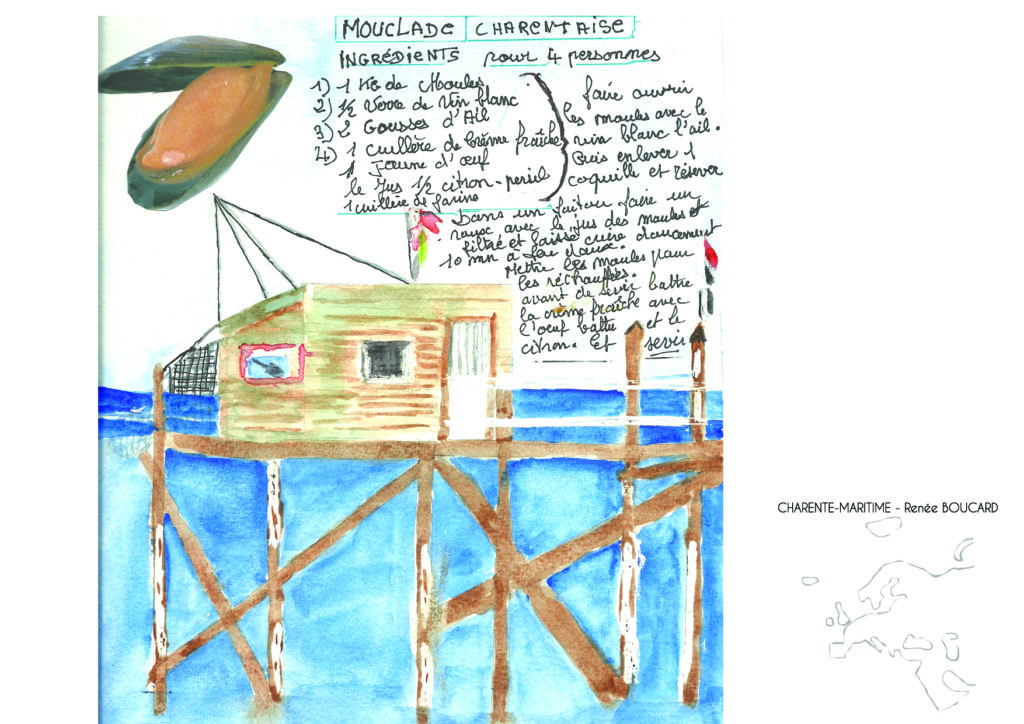 MOUCLADE CHARENTAISE
INGRÉDIENTS pour 4 personnes
1) 1 KG de Moules
2) ½ Verre de Vin blanc
3) 2 Gousses d'Ail
4) 1 cuillère de Crème fraîche
1 Jaune d'œuf
le Jus ½ citron - persil
1 cuillère de farine
faire ouvrir
les moules avec le
vin blanc l'ail.
Puis enlever 1
coquille et réserver
Dans un faitout faire un
roux avec le jus des moules et
filtré et laisse cuire doucement
10 mn à feu doux.
Mettre les moules pour
les réchauffées.
avant de sevir battre
la crème fraîche avec
l'œuf battu et le
citron. Et sevir
CHARENTE-MARITIME - Renée BOUCARD